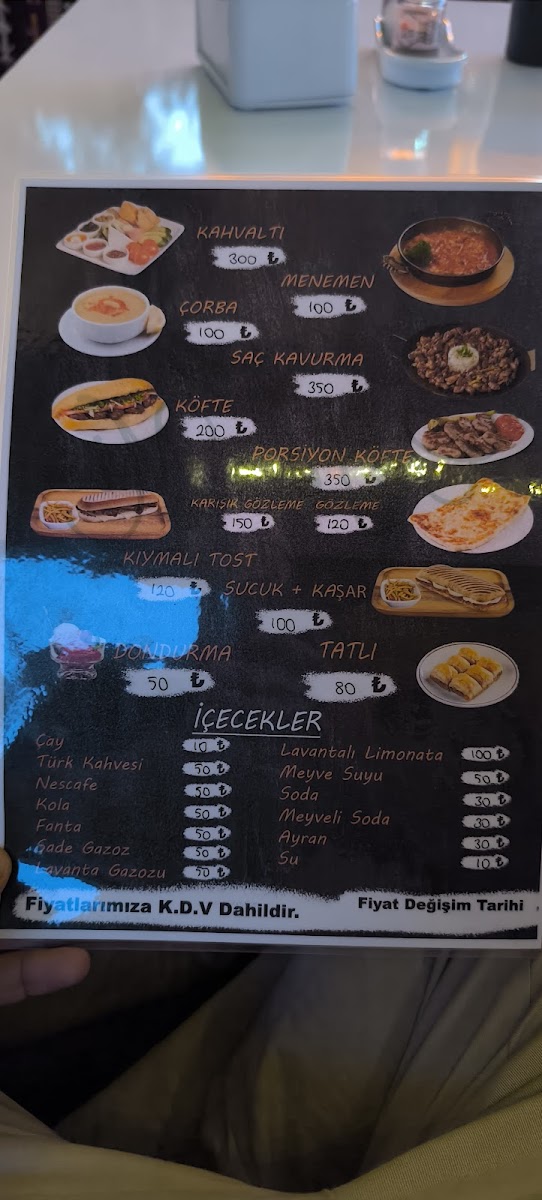 KAHVALTI
300 ₺
MENEMEN
100 ₺
ÇORBA
100 ₺
SAÇ KAVURMA
350 ₺
KÖFTE
200 ₺
PORSİYON KÖFTE
350 ₺
KARIŞIK GÖZLEME GÖZLEME
150 ₺ 120 ₺
KIYMALI TOST
120 ₺
SUCUK + KAŞAR
100 ₺
DONDURMA
50 ₺
TATLI
80 ₺
İÇECEKLER
Çay 10 ₺
Türk Kahvesi 50 ₺
Nescafe 50 ₺
Kola 50 ₺
Fanta 50 ₺
Sade Gazoz 50 ₺
Lavanta Gazozu 50 ₺
Lavantalı Limonata 100 ₺
Meyve Suyu 50 ₺
Soda 30 ₺
Meyveli Soda 30 ₺
Ayran 30 ₺
Su 10 ₺
Fiyatlarımıza K.D.V Dahildir.
Fiyat Değişim Tarihi